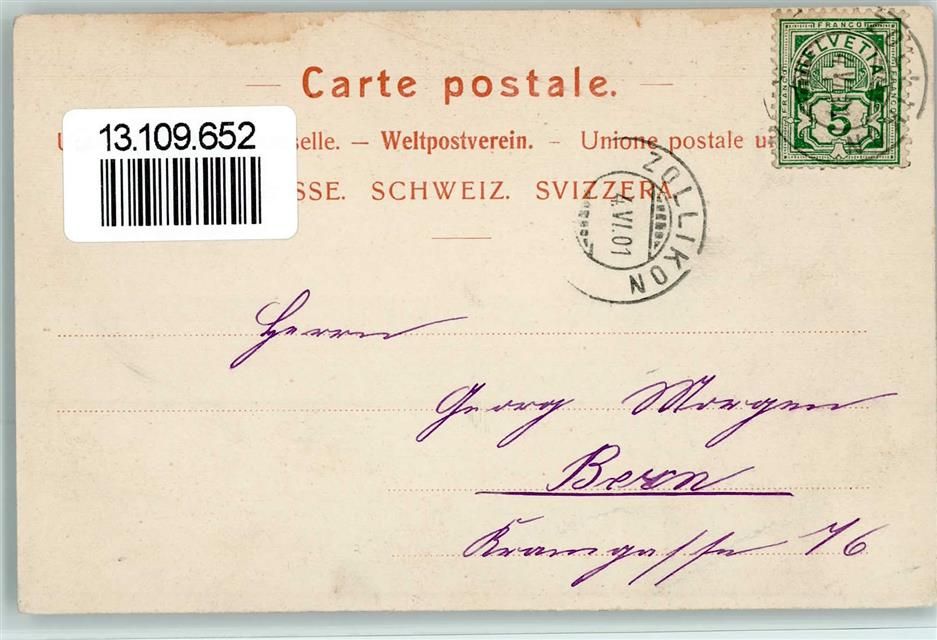 — Carte postale. —
selle. — Weltpostverein. — Unione postale u
SSE. SCHWEIZ. SVIZZERA.
13.109.652
FRANCO
HELVETIA
FRANCO
FRANCO
5
ZOLLIKON
4.VI.01
Herrn
Georg Morgen
Bern
Kramgasse 76